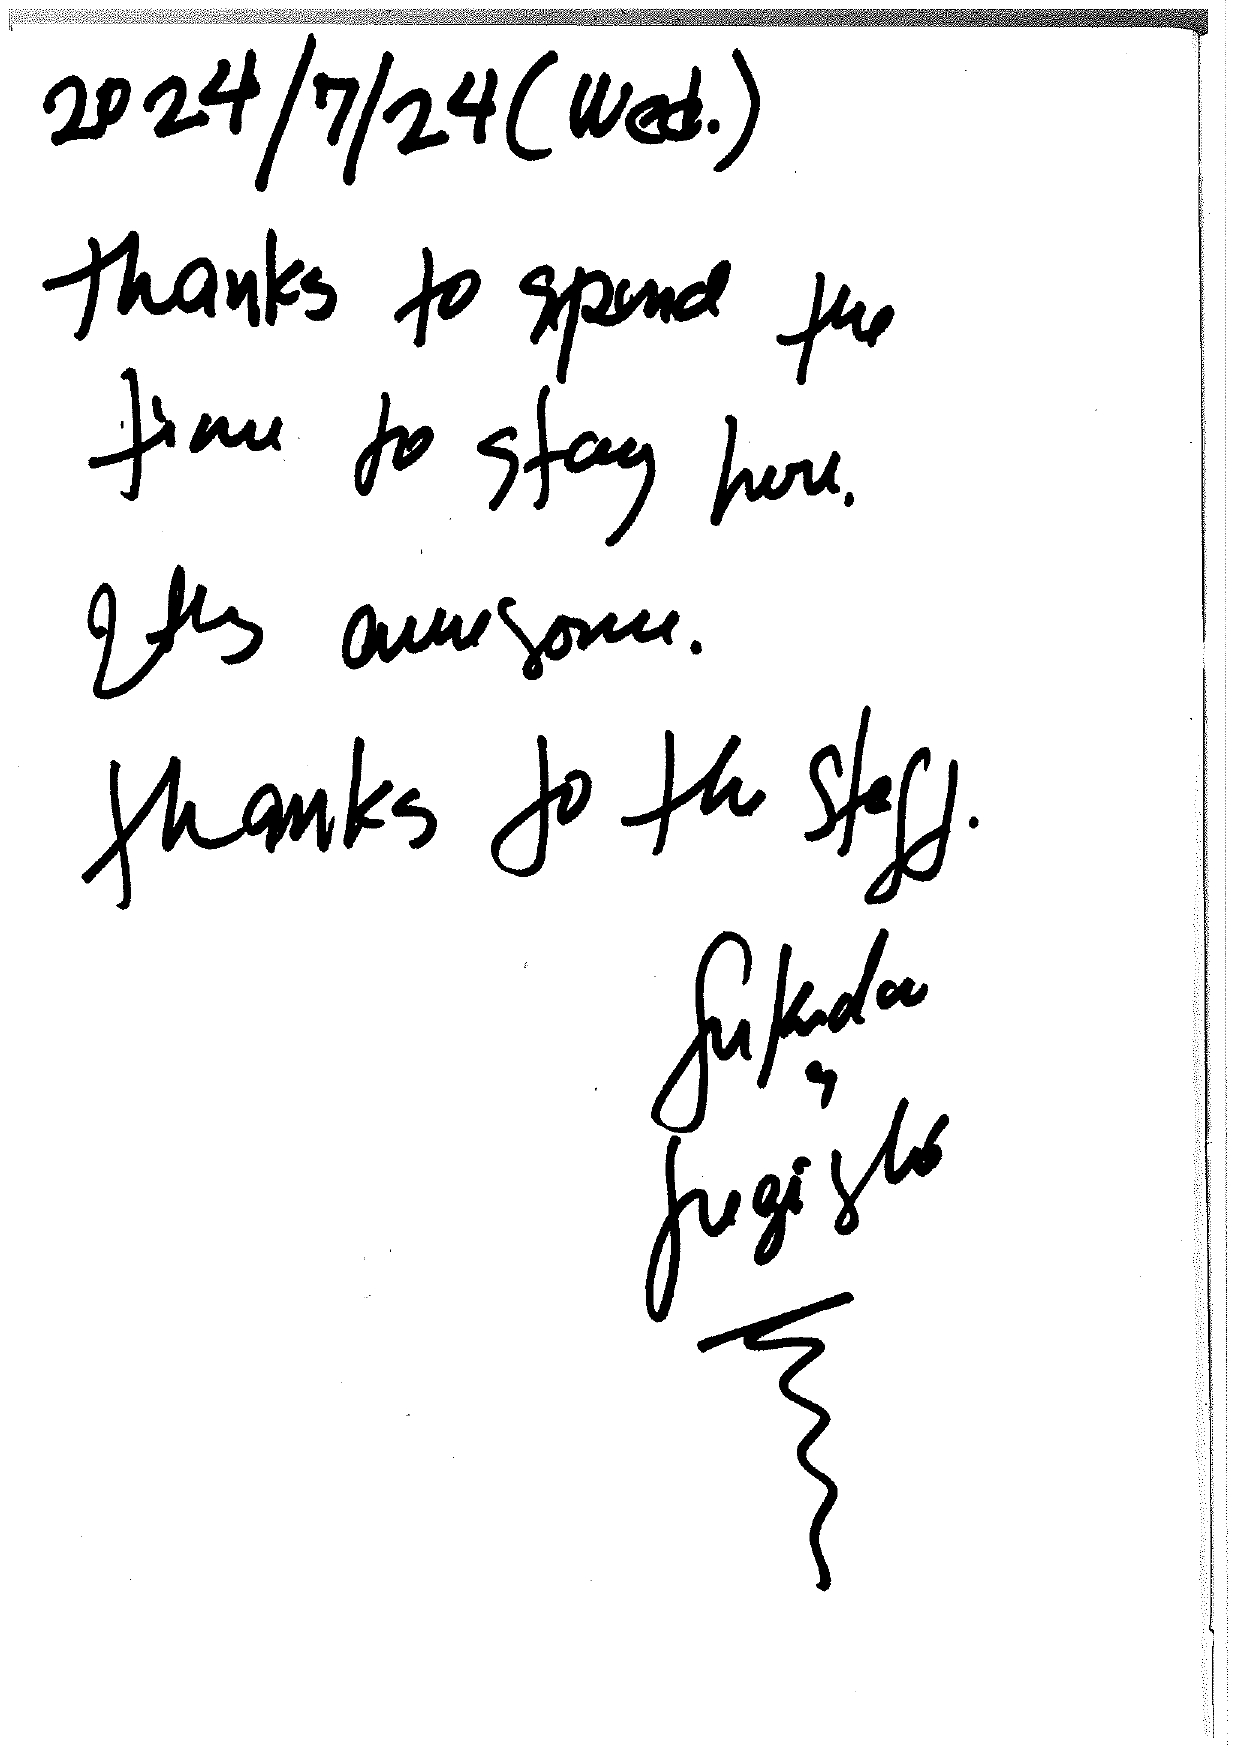 2024/7/24 (Wed.)
Thanks to spend the
time to stay here.
It's awesome.
Thanks to the staff.
Fukuda